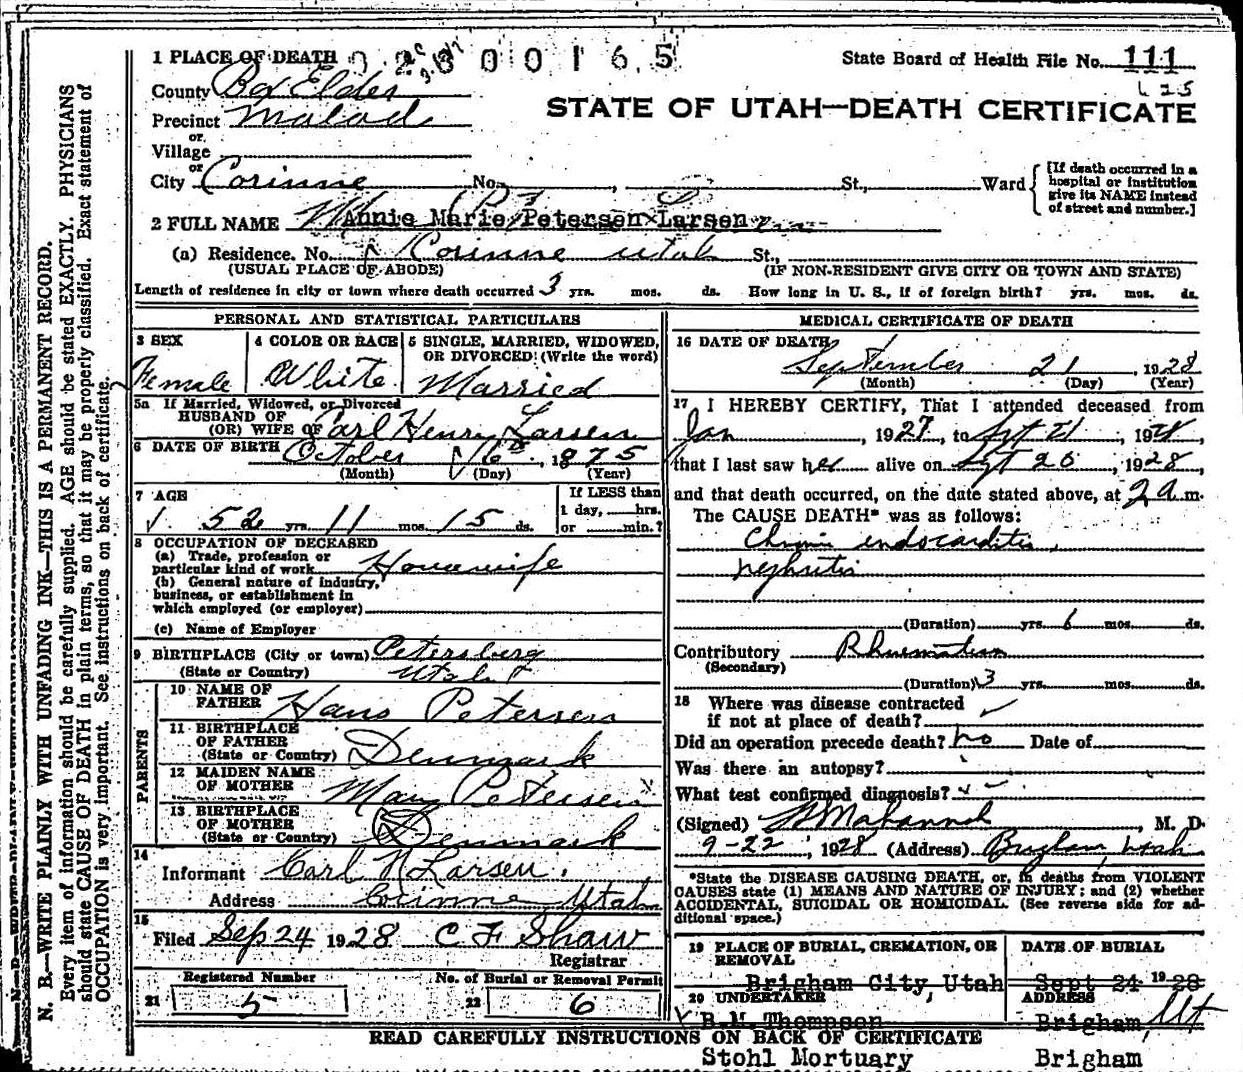 1 PLACE OF DEATH 0 2 8 0 0 1 6 5
State Board of Health File No. 111
County Box Elder
125
STATE OF UTAH—DEATH CERTIFICATE
Precinct Malad
or
Village
or
City Corinne No. , St., Ward
[If death occurred in a hospital or institution give its NAME instead of street and number.]
2 FULL NAME Annie Marie Petersen Larsen
(a) Residence. No. Corinne Utah St.,
(USUAL PLACE OF ABODE) (IF NON-RESIDENT GIVE CITY OR TOWN AND STATE)
Length of residence in city or town where death occurred 3 yrs. mos. ds. How long in U. S., if of foreign birth? yrs. mos. ds.
PERSONAL AND STATISTICAL PARTICULARS
3 SEX
Female
4 COLOR OR RACE
White
5 SINGLE, MARRIED, WIDOWED,
OR DIVORCED? (Write the word)
Married
5a If Married, Widowed, or Divorced
HUSBAND OF
(OR) WIFE OF Carl Henry Larsen
6 DATE OF BIRTH October 6th, 1875
(Month) (Day) (Year)
7 AGE
52 yrs. 11 mos. 15 ds.
If LESS than
1 day, hrs.
or min.?
8 OCCUPATION OF DECEASED
(a) Trade, profession or
particular kind of work Housewife
(b) General nature of industry,
business, or establishment in
which employed (or employer)
(c) Name of Employer
9 BIRTHPLACE (City or town) Petersberg
(State or Country) Utah
PARENTS
10 NAME OF
FATHER Hans Petersen
11 BIRTHPLACE
OF FATHER
(State or Country) Denmark
12 MAIDEN NAME
OF MOTHER Mary Petersen x
13 BIRTHPLACE
OF MOTHER
(State or Country) Denmark
14
Informant Carl H Larsen.
Address Corinne Utah
15
Filed Sep 24 1928 C F Shaw
Registrar
Registered Number
21 5
No. of Burial or Removal Permit
22 6
MEDICAL CERTIFICATE OF DEATH
16 DATE OF DEATH
September 21, 1928
(Month) (Day) (Year)
17 I HEREBY CERTIFY, That I attended deceased from
Jan, 1927, to Sept 21, 1928,
that I last saw her alive on Sept 20, 1928,
and that death occurred, on the date stated above, at 2 a m.
The CAUSE DEATH* was as follows:
Chronic endocarditis,
nephritis
(Duration) yrs. 6 mos. ds.
Contributory Rheumatism
(Secondary)
(Duration) 3 yrs. mos. ds.
18 Where was disease contracted
if not at place of death?
Did an operation precede death? no Date of
Was there an autopsy?
What test confirmed diagnosis?
(Signed) , M. D.
9-22, 1928 (Address) Brigham, Utah
*State the DISEASE CAUSING DEATH, or, in deaths from VIOLENT
CAUSES state (1) MEANS AND NATURE OF INJURY; and (2) whether
ACCIDENTAL, SUICIDAL OR HOMICIDAL. (See reverse side for ad-
ditional space.)
19 PLACE OF BURIAL, CREMATION, OR
REMOVAL
Brigham City, Utah
DATE OF BURIAL
Sept 24 1928
20 UNDERTAKER
B.M. Thompson
Stohl Mortuary
ADDRESS
Brigham, Ut
Brigham
READ CAREFULLY INSTRUCTIONS ON BACK OF CERTIFICATE
N. B.—WRITE PLAINLY WITH UNFADING INK—THIS IS A PERMANENT RECORD.
Every item of information should be carefully supplied. AGE should be stated EXACTLY. PHYSICIANS
should state CAUSE OF DEATH in plain terms, so that it may be properly classified. Exact statement of
OCCUPATION is very important. See instructions on back of certificate.